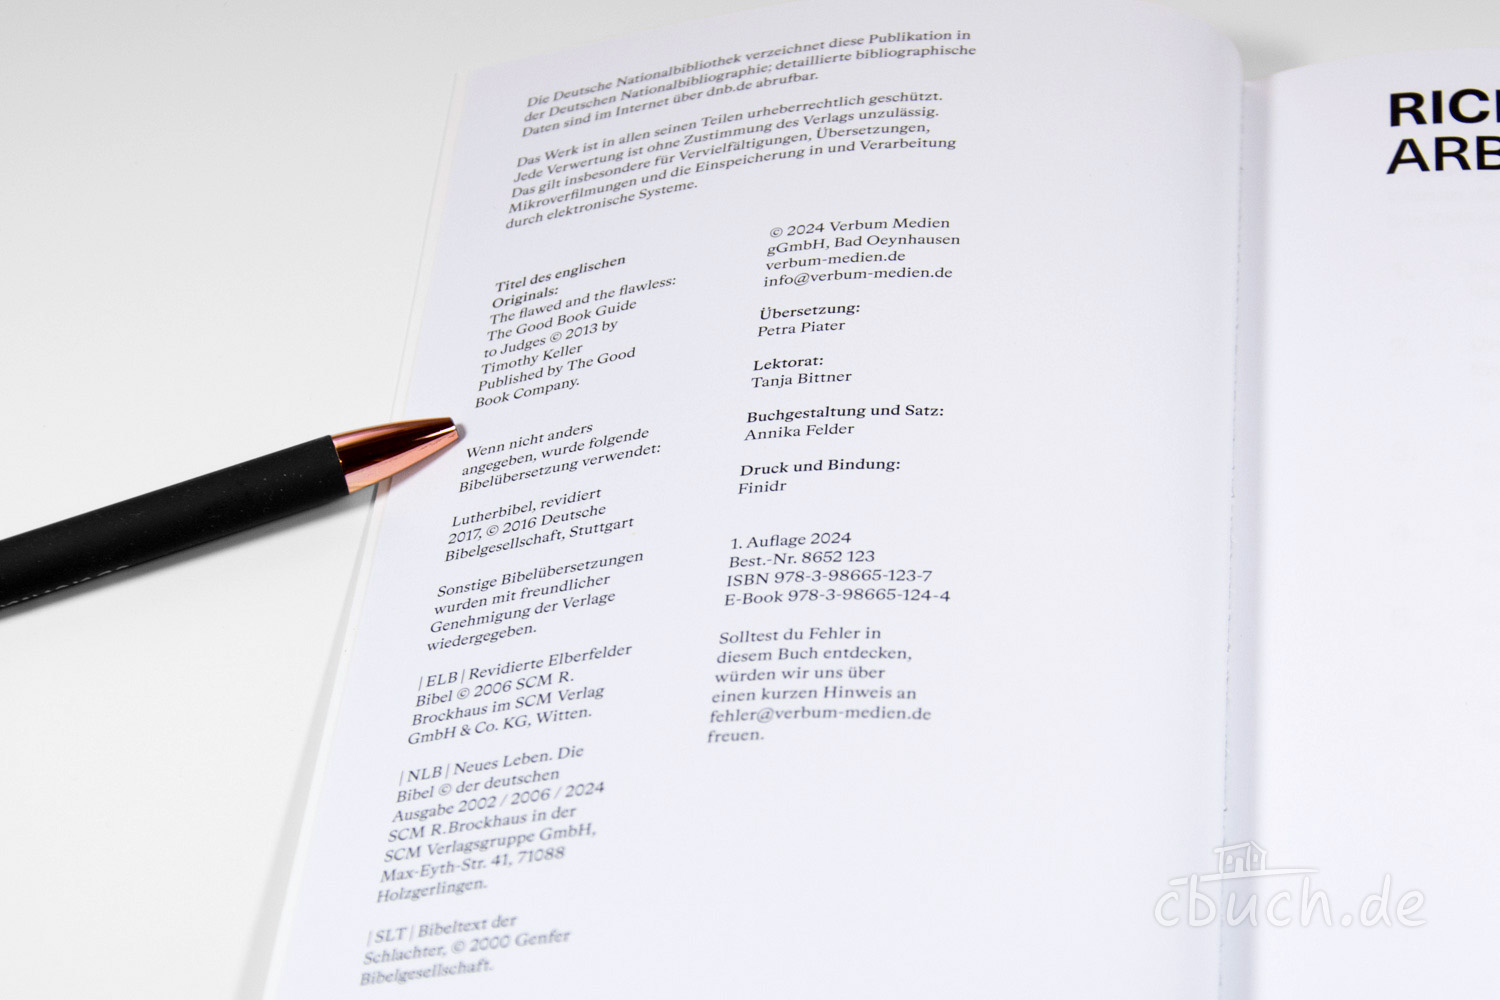 Die Deutsche Nationalbibliothek verzeichnet diese Publikation in
der Deutschen Nationalbibliographie; detaillierte bibliographische
Daten sind im Internet über dnb.de abrufbar.
Das Werk ist in allen seinen Teilen urheberrechtlich geschützt.
Jede Verwertung ist ohne Zustimmung des Verlags unzulässig.
Das gilt insbesondere für Vervielfältigungen, Übersetzungen,
Mikroverfilmungen und die Einspeicherung in und Verarbeitung
durch elektronische Systeme.
Titel des englischen
Originals:
The flawed and the flawless:
The Good Book Guide
to Judges © 2013 by
Timothy Keller
Published by The Good
Book Company.
Wenn nicht anders
angegeben, wurde folgende
Bibelübersetzung verwendet:
Lutherbibel, revidiert
2017, © 2016 Deutsche
Bibelgesellschaft, Stuttgart
Sonstige Bibelübersetzungen
wurden mit freundlicher
Genehmigung der Verlage
wiedergegeben.
| ELB | Revidierte Elberfelder
Bibel © 2006 SCM R.
Brockhaus im SCM Verlag
GmbH & Co. KG, Witten.
| NLB | Neues Leben. Die
Bibel © der deutschen
Ausgabe 2002 / 2006 / 2024
SCM R.Brockhaus in der
SCM Verlagsgruppe GmbH,
Max-Eyth-Str. 41, 71088
Holzgerlingen.
| SLT | Bibeltext der
Schlachter, © 2000 Genfer
Bibelgesellschaft.
© 2024 Verbum Medien
gGmbH, Bad Oeynhausen
verbum-medien.de
info@verbum-medien.de
Übersetzung:
Petra Piater
Lektorat:
Tanja Bittner
Buchgestaltung und Satz:
Annika Felder
Druck und Bindung:
Finidr
1. Auflage 2024
Best.-Nr. 8652 123
ISBN 978-3-98665-123-7
E-Book 978-3-98665-124-4
Solltest du Fehler in
diesem Buch entdecken,
würden wir uns über
einen kurzen Hinweis an
fehler@verbum-medien.de
freuen.
RIC
ARB
cbuch.de